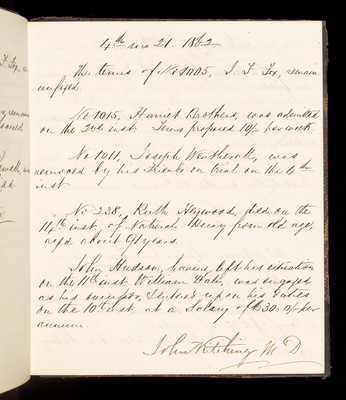 4th mo 21. 1862.
The terms of No 1005, J. F. Fox, remain
unfixed.
No 1015, Harriet Brothers, was admitted
on the 2nd inst. Terms proposed 10/- per week.
No 1011, Joseph Wetherall, was
removed by his Friends on trial on the 4th
inst.
No 238, Ruth Heywood, died on the
14th inst, of Natural Decay from old age,
aged about 91 years.
John Hudson, having left his situation
on the 11th inst. William Hall, was engaged
as his successor, & entered upon his duties
on the 10th inst. at a Salary of £30. 0/- per
annum.
John Kitching M.D.